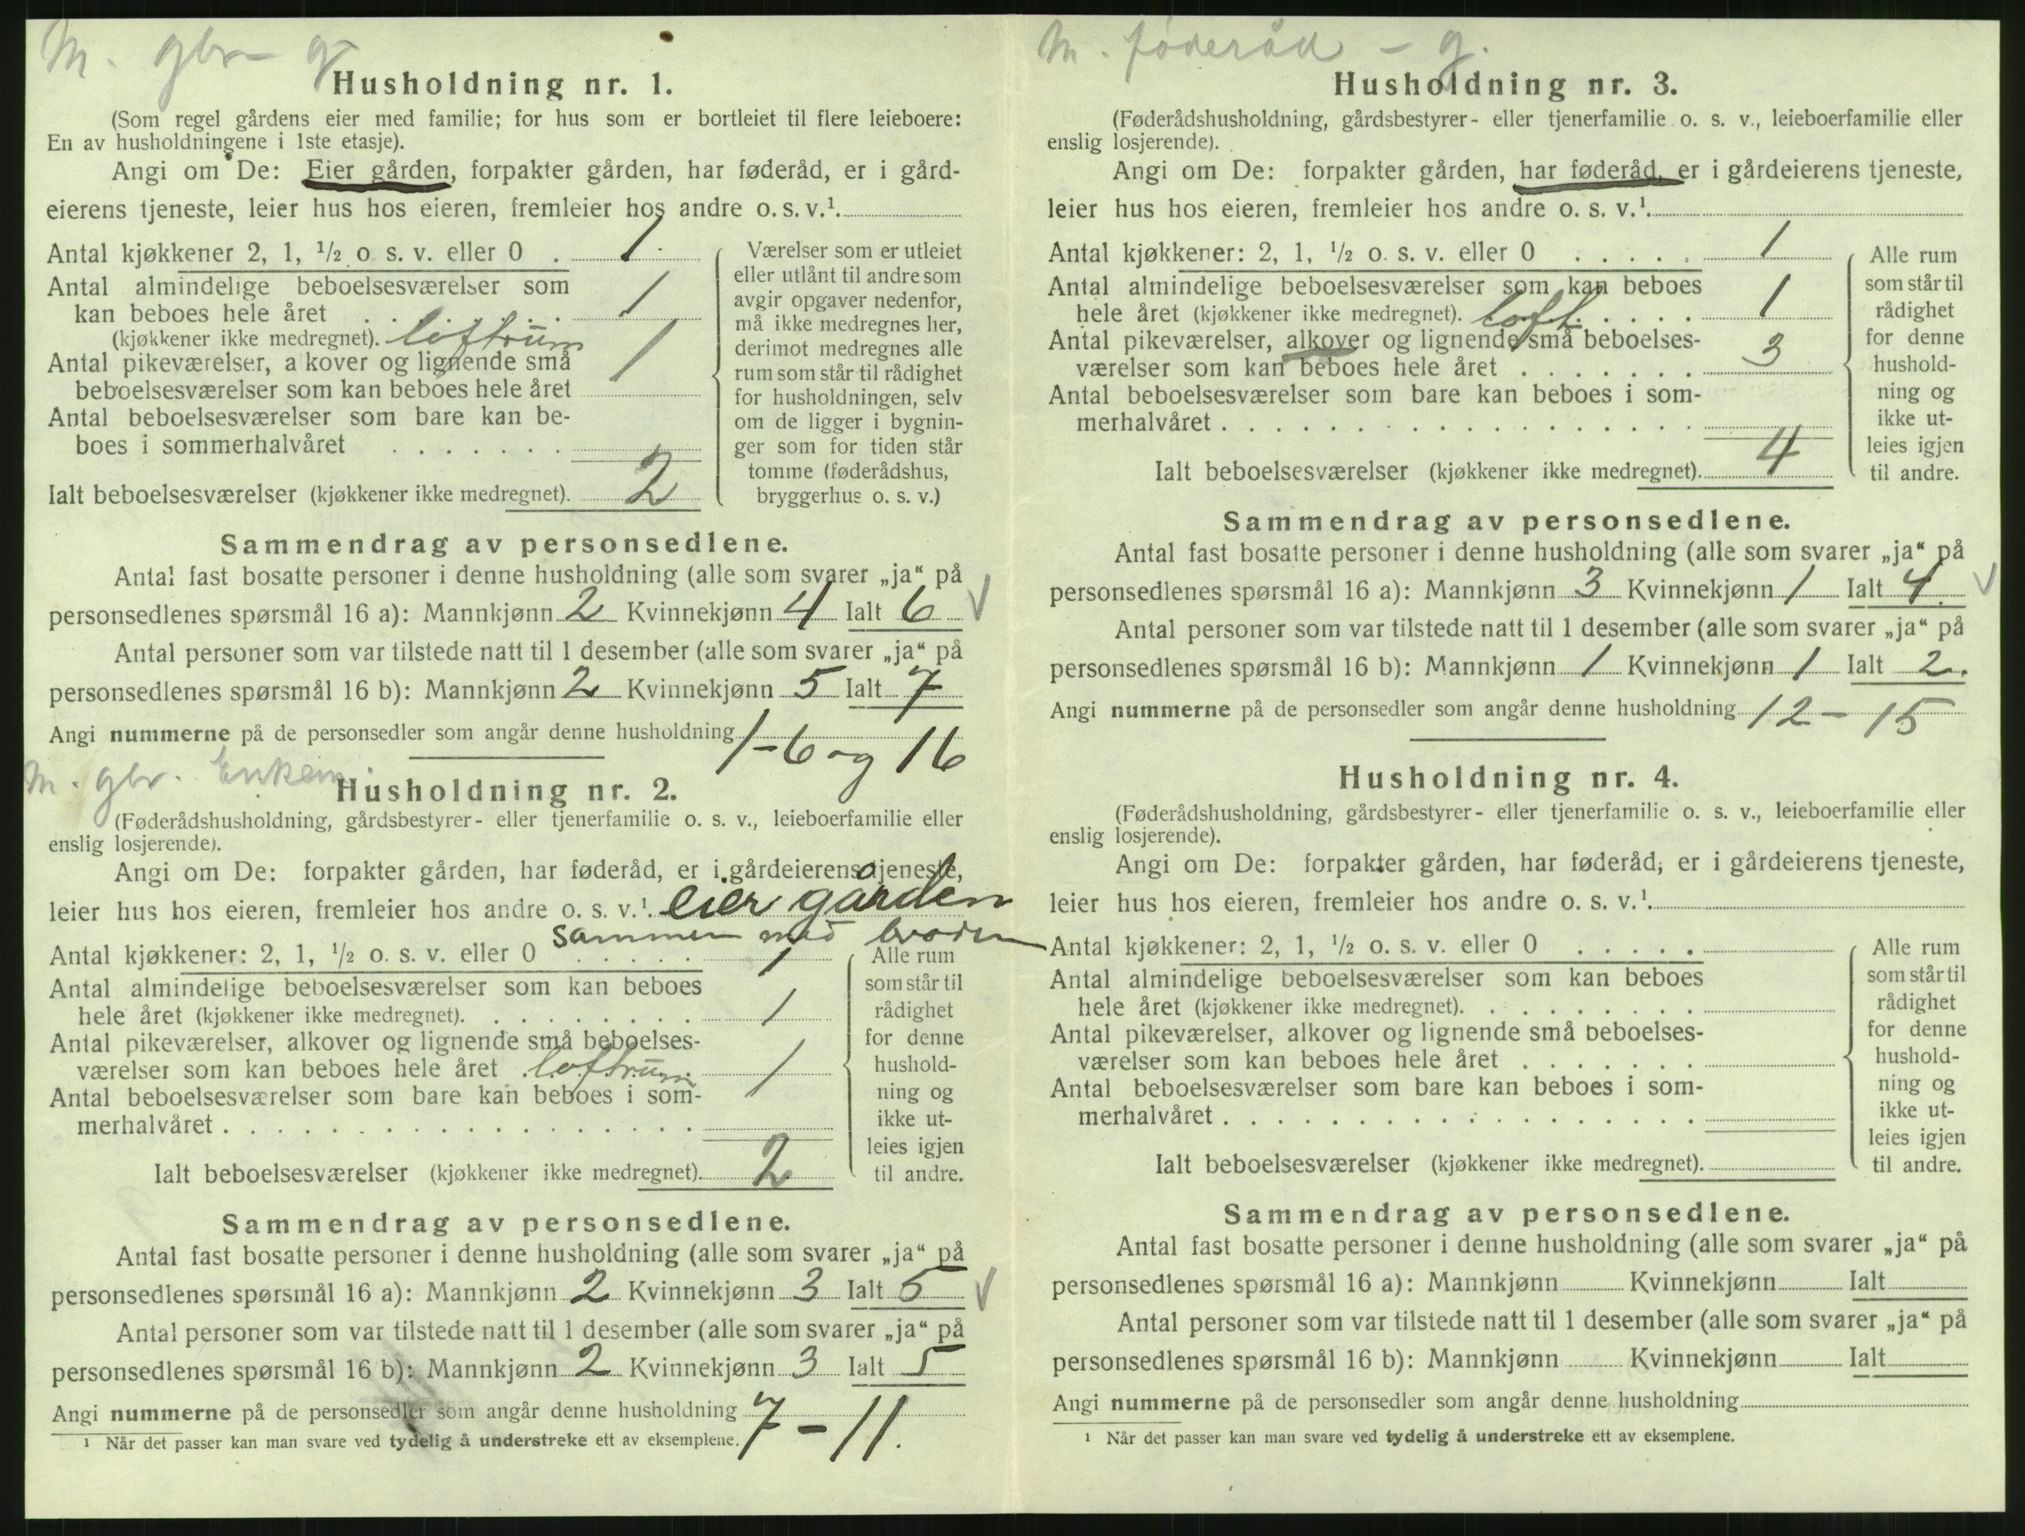 M. gbr - g
Husholdning nr. 1.
(Som regel gårdens eier med familie; for hus som er bortleiet til flere leieboere:
En av husholdningene i 1ste etasje).
Angi om De: Eier gården, forpakter gården, har føderåd, er i gård-
eierens tjeneste, leier hus hos eieren, fremleier hos andre o. s. v.¹.
Antal kjøkkener 2, 1, ½ o s. v. eller 0 . 1.
Antal almindelige beboelsesværelser som
kan beboes hele året . . . . . . . 1
(kjøkkener ikke medregnet). loftrum
Antal pikeværelser, a kover og lignende små 1
beboelsesværelser som kan beboes hele året
Antal beboelsesværelser som bare kan be-
boes i sommerhalvåret . . . . . . .
Ialt beboelsesværelser (kjøkkener ikke medregnet). 2
Værelser som er utleiet
eller utlånt til andre som
avgir opgaver nedenfor,
må ikke medregnes her,
derimot medregnes alle
rum som står til rådighet
for husholdningen, selv
om de ligger i bygnin-
ger som for tiden står
tomme (føderådshus,
bryggerhus o. s. v.)
Sammendrag av personsedlene.
Antal fast bosatte personer i denne husholdning (alle som svarer „ja“ på
personsedlenes spørsmål 16 a): Mannkjønn 2 Kvinnekjønn 4 Ialt 6
Antal personer som var tilstede natt til 1 desember (alle som svarer „ja“ på
personsedlenes spørsmål 16 b): Mannkjønn 2 Kvinnekjønn 5 Ialt 7
Angi nummerne på de personsedler som angår denne husholdning 1-6 og 16
M. gbr. Enkem.
Husholdning nr. 2.
(Føderådshusholdning, gårdsbestyrer- eller tjenerfamilie o. s. v., leieboerfamilie eller
enslig losjerende).
Angi om De: forpakter gården, har føderåd, er i gårdeierens tjeneste,
leier hus hos eieren, fremleier hos andre o. s. v.¹. eier gården
sammen med
Antal kjøkkener: 2, 1, ½ o. s. v. eller 0 . . . . . 1
Antal almindelige beboelsesværelser som kan beboes
hele året (kjøkkener ikke medregnet). . . . . . . . . 1
Antal pikeværelser, alkover og lignende små beboelses-
værelser som kan beboes hele året . loftrum 1
Antal beboelsesværelser som bare kan beboes i som-
merhalvåret . . . . . . . . . . . . . . . . . .
Ialt beboelsesværelser (kjøkkener ikke medregnet). 2
Alle rum
som står til
rådighet
for denne
hushold-
ning og
ikke ut-
leies igjen
til andre.
Sammendrag av personsedlene.
Antal fast bosatte personer i denne husholdning (alle som svarer „ja“ på
personsedlenes spørsmål 16 a): Mannkjønn 2 Kvinnekjønn 3 Ialt 5
Antal personer som var tilstede natt til 1 desember (alle som svarer „ja“ på
personsedlenes spørsmål 16 b): Mannkjønn 2 Kvinnekjønn 3 Ialt 5
Angi nummerne på de personsedler som angår denne husholdning 7 - 11.
¹ Når det passer kan man svare ved tydelig å understreke ett av eksemplene.
M. føderåd - g.
Husholdning nr. 3.
(Føderådshusholdning, gårdsbestyrer- eller tjenerfamilie o. s. v., leieboerfamilie eller
enslig losjerende).
Angi om De: forpakter gården, har føderåd, er i gårdeierens tjeneste,
leier hus hos eieren, fremleier hos andre o. s. v.¹.
Antal kjøkkener: 2, 1, ½ o. s. v. eller 0 . . . . . 1
Antal almindelige beboelsesværelser som kan beboes
hele året (kjøkkener ikke medregnet). loft. . . . . 1
Antal pikeværelser, alkover og lignende små beboelses-
værelser som kan beboes hele året . . . . . . . 3
Antal beboelsesværelser som bare kan beboes i som-
merhalvåret . . . . . . . . . . . . . . . . . .
Ialt beboelsesværelser (kjøkkener ikke medregnet). 4
Alle rum
som står til
rådighet
for denne
hushold-
ning og
ikke ut-
leies igjen
til andre.
Sammendrag av personsedlene.
Antal fast bosatte personer i denne husholdning (alle som svarer „ja“ på
personsedlenes spørsmål 16 a): Mannkjønn 3 Kvinnekjønn 1 Ialt 4.
Antal personer som var tilstede natt til 1 desember (alle som svarer „ja“ på
personsedlenes spørsmål 16 b): Mannkjønn 1 Kvinnekjønn 1 Ialt 2.
Angi nummerne på de personsedler som angår denne husholdning 12 - 15
Husholdning nr. 4.
(Føderådshusholdning, gårdsbestyrer- eller tjenerfamilie o. s. v., leieboerfamilie eller
enslig losjerende).
Angi om De: forpakter gården, har føderåd, er i gårdeierens tjeneste,
leier hus hos eieren, fremleier hos andre o. s. v.¹.
Antal kjøkkener: 2, 1, ½ o. s. v. eller 0 . . . . .
Antal almindelige beboelsesværelser som kan beboes
hele året (kjøkkener ikke medregnet). . . . . . . . .
Antal pikeværelser, alkover og lignende små beboelses-
værelser som kan beboes hele året . . . . . . .
Antal beboelsesværelser som bare kan beboes i som-
merhalvåret . . . . . . . . . . . . . . . . . .
Ialt beboelsesværelser (kjøkkener ikke medregnet).
Alle rum
som står til
rådighet
for denne
hushold-
ning og
ikke ut-
leies igjen
til andre.
Sammendrag av personsedlene.
Antal fast bosatte personer i denne husholdning (alle som svarer „ja“ på
personsedlenes spørsmål 16 a): Mannkjønn Kvinnekjønn Ialt
Antal personer som var tilstede natt til 1 desember (alle som svarer „ja“ på
personsedlenes spørsmål 16 b): Mannkjønn Kvinnekjønn Ialt
Angi nummerne på de personsedler som angår denne husholdning
¹ Når det passer kan man svare ved tydelig å understreke ett av eksemplene.